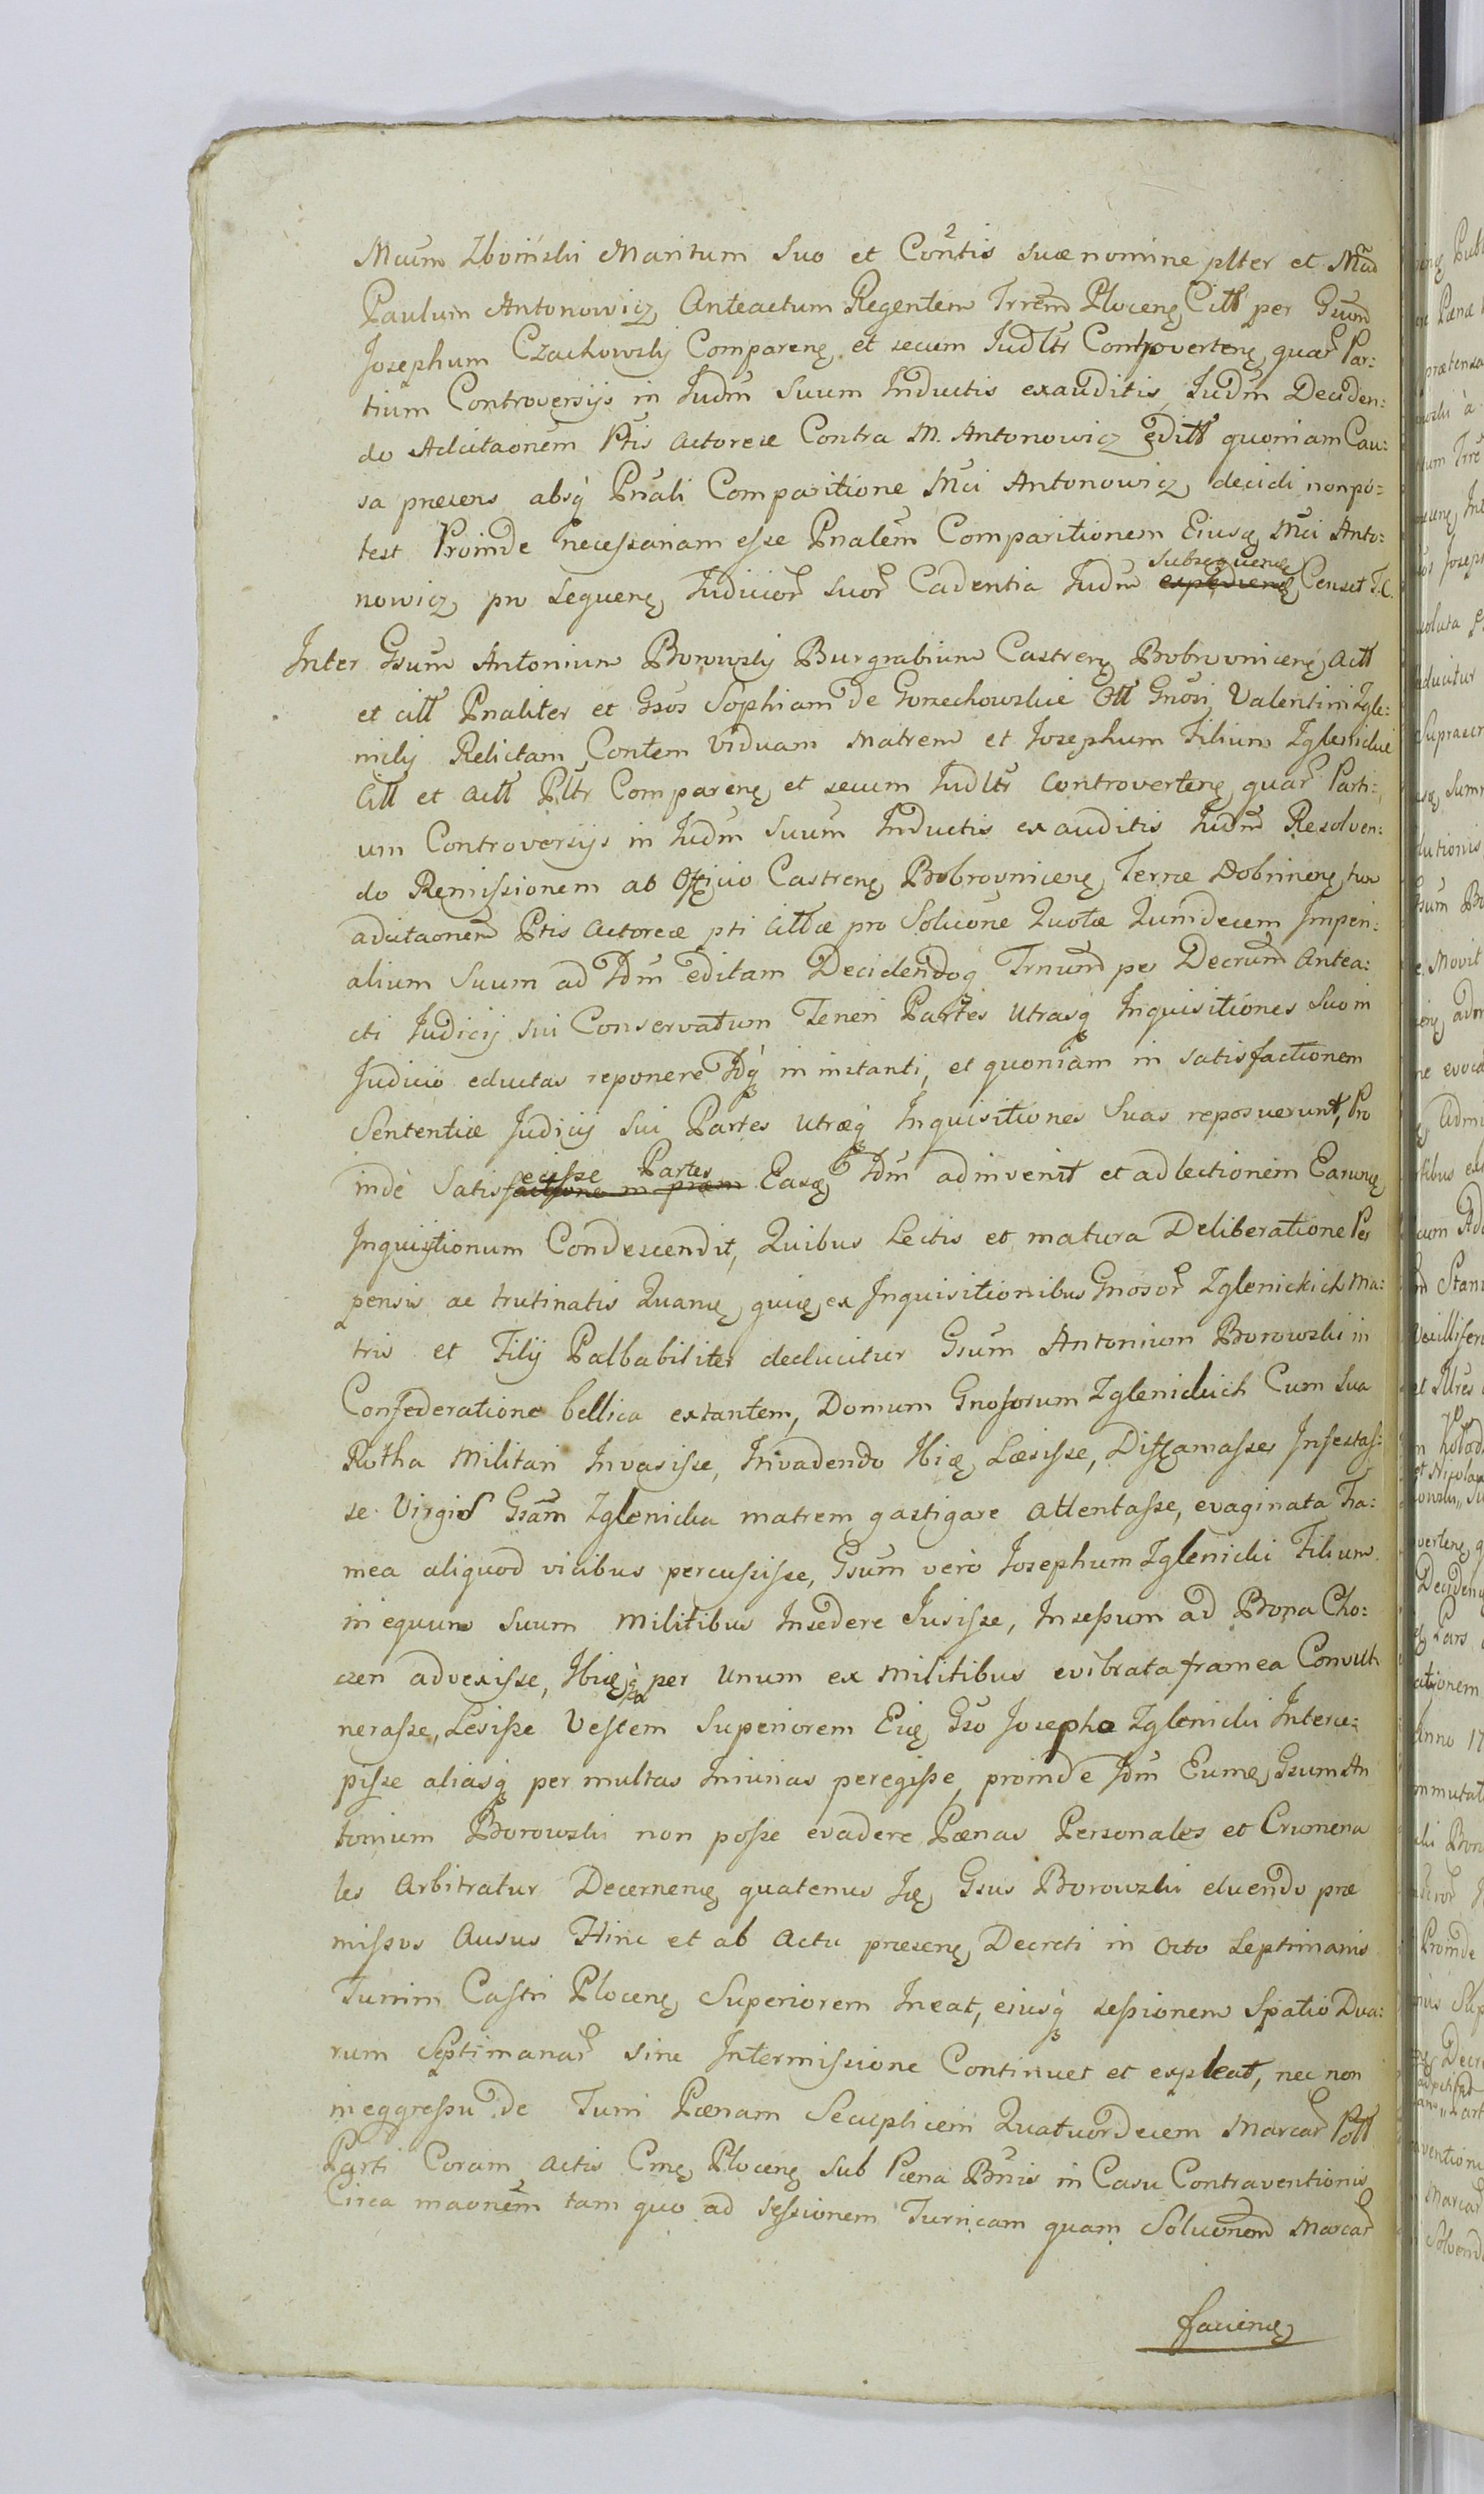 Mcum Zboiński Maritum suo et Contis suæ nomine plter et Mcud
Paulum Antonowicz Anteactum Regentem Trrem Plocenę Citt per Gsum
Josephum Czachowsky Comparenę et secum Judltr Controvertenę quar Par:
tium Controversijs in Judm Suum Inductis exauditis Judm Deciden:
do Adcitaonem Ptis Actoreæ Contra M. Antonowicz editt quoniam Cau:
sa præsens absq Pnali Comparitione Mci Antonowicz decidi non po:
test Proinde necessariam esse Pnalem Comparitionem Eiusę Mci Anto:
nowicz pro sequenę Judicior suor Cadentia Judm subsequenę Censet T.C.
Inter Gsum Antonium Borowsky Burgrabium Castrenę Bobrovnicenę Actt
et citt Pnaliter et Gsos Sophiam de Gorzechowskie Ott Gnosi Valentini Zgle:
nicky Relictam Contem Viduam Matrem et Josephum Filium Zglenickie
Citt et Actt Pltr Comparenę et secum Judltr Controvertenę quar Parti:
um Controversijs in Judm Suum Inductis exauditis Judm Resolven:
do Remissionem ab Officio Castrenę Bobrovnicenę Terræ Dobrinenę tum
adcitaonem Ptis Actoreæ pti Cittæ pro Solucone Quotæ Quindecem Imperi:
alium Suum ad Jdm editam Decidendoq Trnum per Decrum Antea:
cti Judicij sui Conservatum Teneri Partes Utrasq Inquisitiones Suo in
Judicio eductas reponere Idq in instanti, et quoniam in satisfactionem
Sententiæ Judicij Sui Partes Utræq Inquisitiones Suas reposuerunt, Pro
inde Satisfecisse Partes Easę Jdm adinvenit et ad lectionem Earunę
Inquisitionum Condescendit, Quibus Lectis et matura Deliberatione Per
pensis ac trutinatis Quanę, quię ex Inquisitionibus Gnosor Zglenickich Ma:
tris et Filij Palbabiliter deducitur Gsum Antonium Borowski in
Confederatione bellica extantem, Domum Gnosorum Zglenickich Cum Sua
Rotha Militari Invasisse, Invadendo Ibię Læsisse, Diffamasse, Infestas:
se Virgis Gsam Zglenicka matrem gastigare attentasse, evaginata Fra:
mea aliquod vicibus percussisse, Gsum vero Josephum Zglenicki Filium
in equum Suum Militibus Insedere Jusisse, Insessum ad Bona Cho:
czen advexisse, Ibięq per Unum ex Militibus evibrata framea Convul:
nerasse, Lesisse Vestem Superiorem Eię Gso Josepho Zglenicki Interce:
pisse aliasq per multas Iniurias peregisse, proinde Jdm Eumę Gsum An
tonium Borowski non posse evadere Pænas Personales et Crumena
les Arbitratur Decernenę quatenus Ię Gsus Borowski eluendo præ
missos Ausus Hinc et ab Actu præsenę Decreti in Octo Septimanis
Turrim Castri Plocenę Superiorem Ineat, eiusq sessionem Spatio Dua:
rum Septimanar sine Intermissione Continuet et expleat, nec non
in eggressu de Turri Pænam Secuplicem Quatuordecem Marcar Pott
Parti Coram Actis Cmę Plocenę sub Pæna Bnis in Casu Contraventionis
Circa maonem tam quo ad Sessionem Turricam quam Solucionem Marcar
facienę